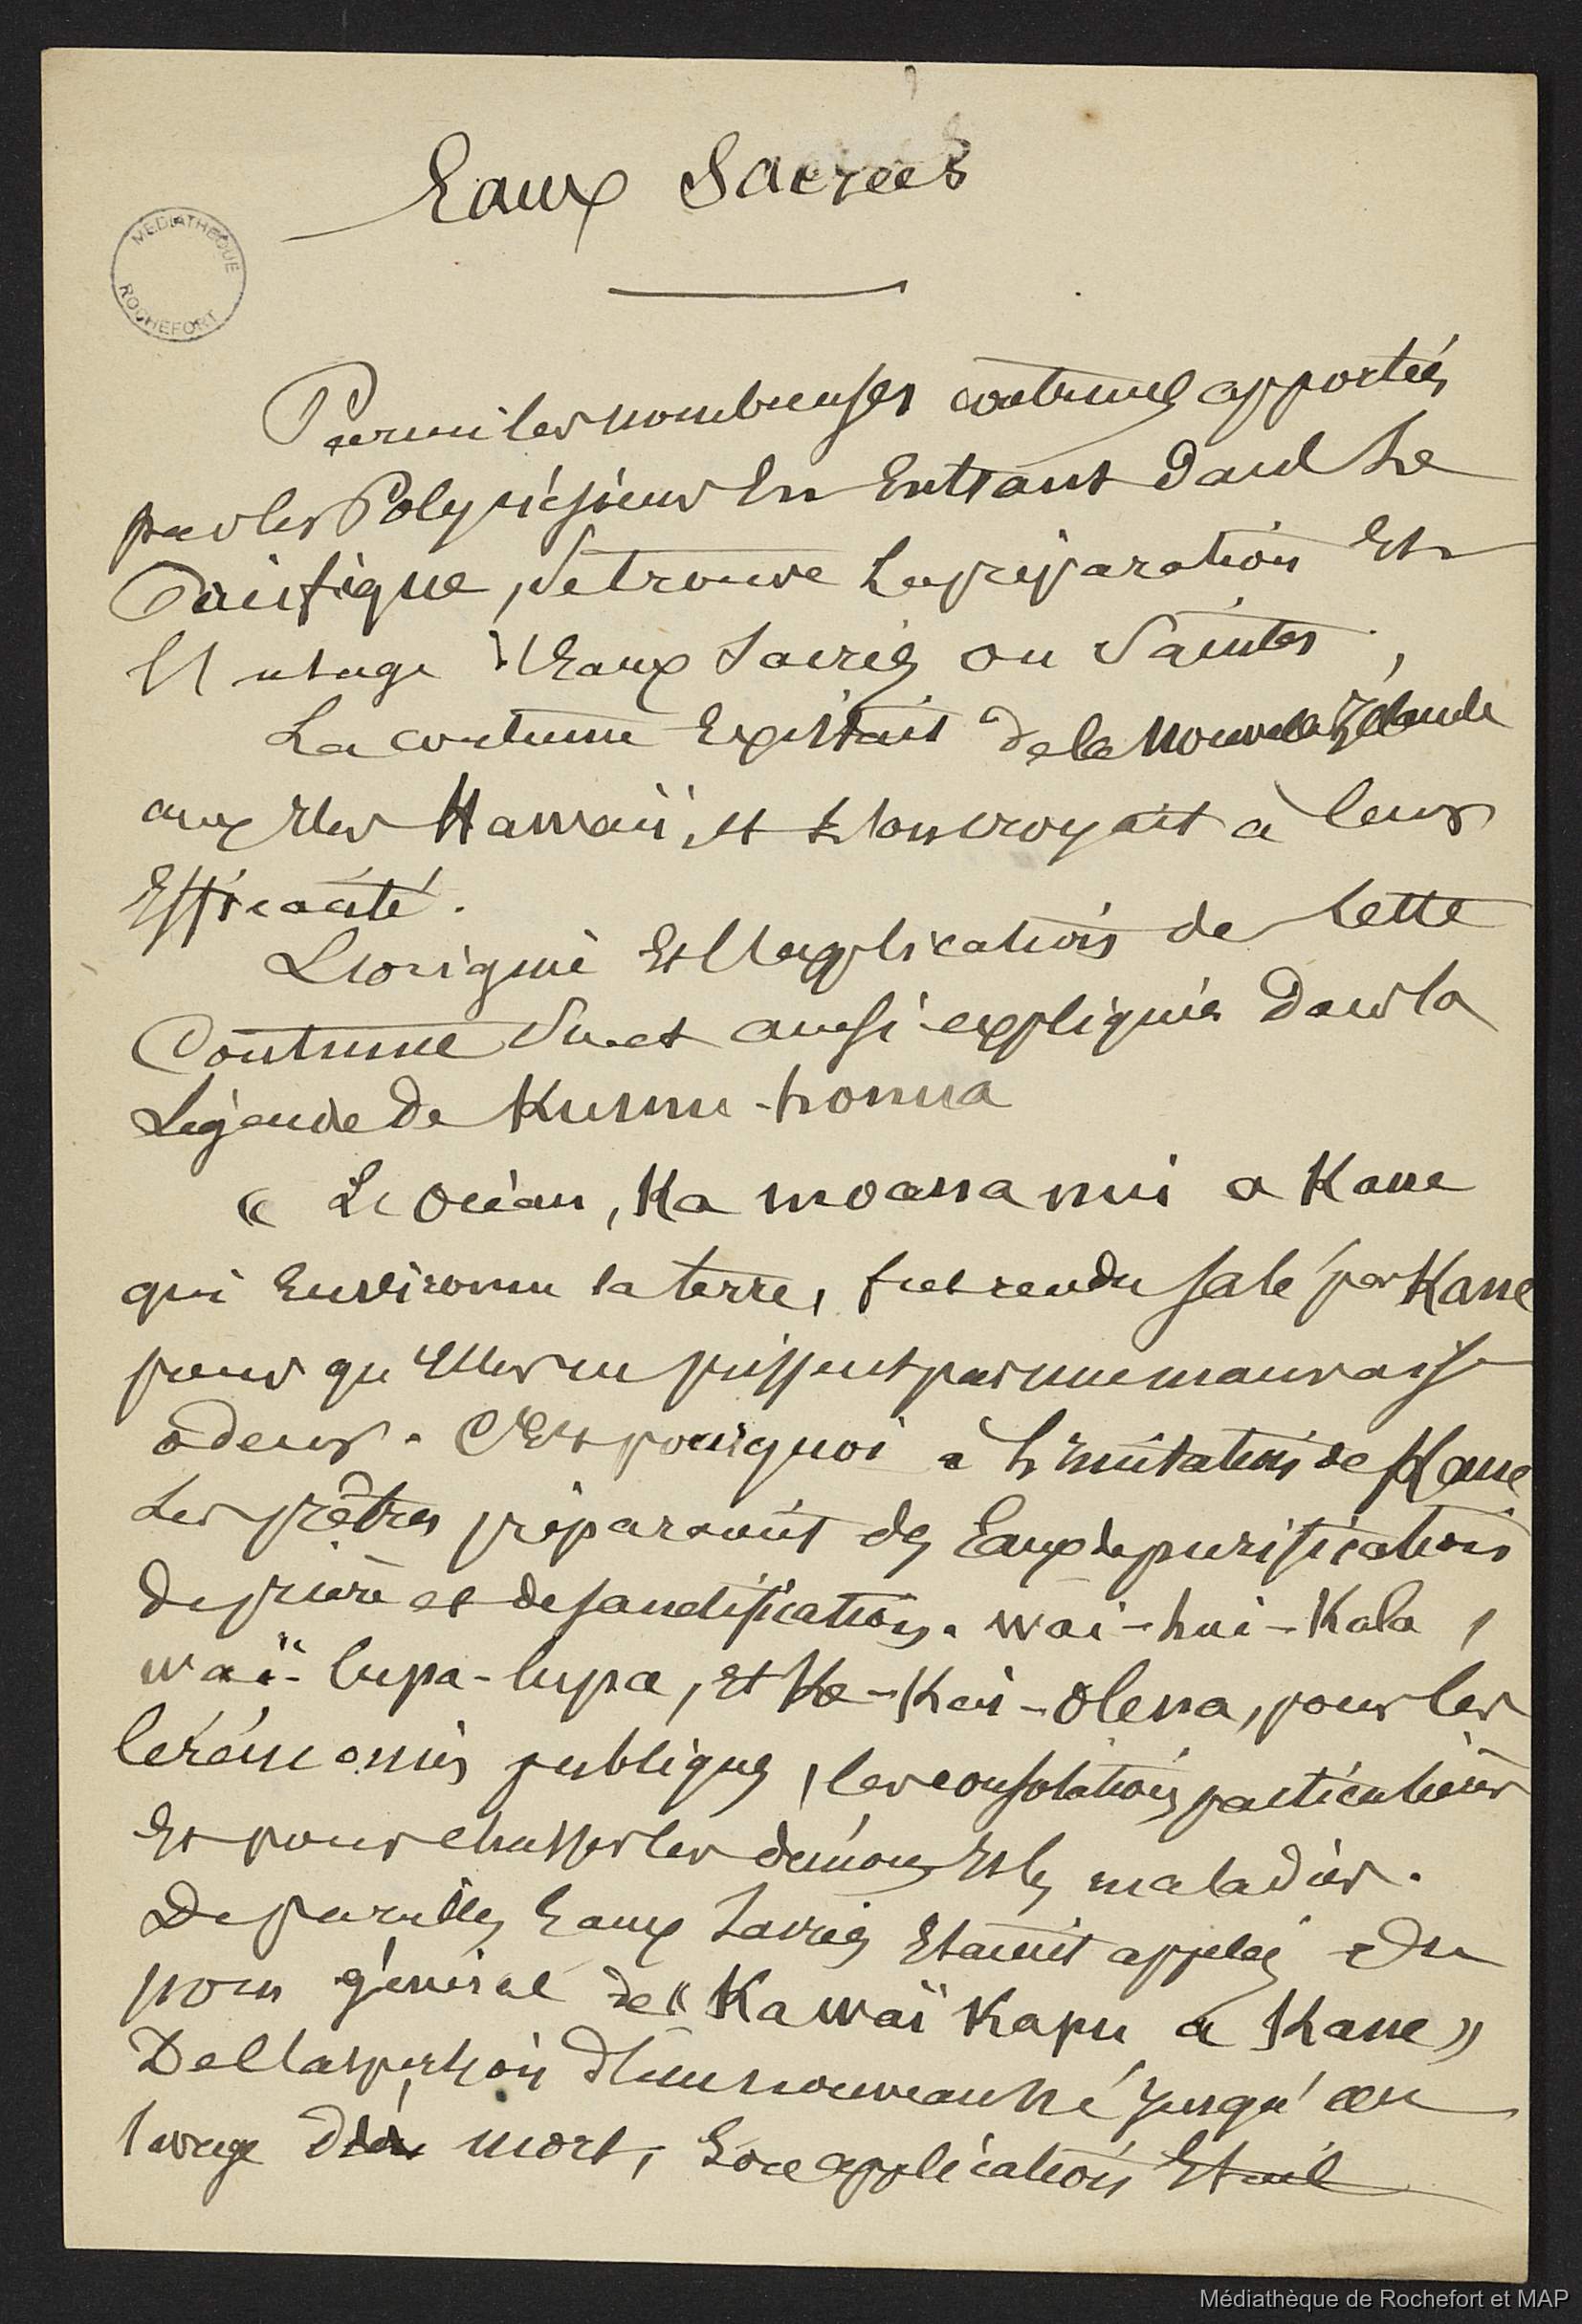 Eaux Sacrées
MEDIATHEQUE
ROCHEFORT
Parmi les nombreuses coutumes apportées
par les Polynésiens En Entrant dans Le
Pacifique, se trouve La préparation Et
l'usage d'Eaux Sacrées ou Saintes,
La coutume Existait de la Nouvelle Zélande
aux Iles Hawaïi, et l'on croyait à leur
Efficacité.
L'origine Et l'application de Cette
Coutume Sont aussi expliquées Dans la
Légende de Kumu-honua
« L'Océan, Ka moana nui a Kane
qui Environne la terre, fut rendu salé par Kane
pour qu'Elles ne prissent pas une mauvaise
odeur. C'Est pourquoi à L'Imitation de Kane
Les prêtres préparaient des Eaux de purification
de prière et de sanctification. Wai-hui-Kala,
waï-lupa-lupa, Et Ke-Kaï-Olena, pour les
Cérémonies publiques, les consolations particulières
Et pour chasser les démons Et les maladies.
De pareilles Eaux Sacrées Etaient appelées du
nom général de « Ka waï Kapu a Kane »
De l'aspersion d'un nouveau né jusqu'au
lavage du mort, Son application Etait
Médiathèque de Rochefort et MAP